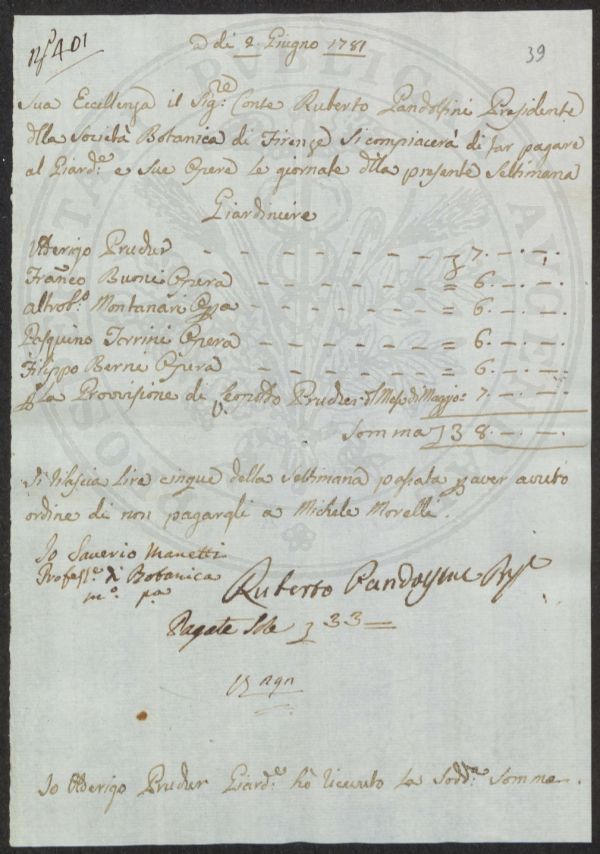 N.º 401
39
A dì 2. Giugno 1781
Sua Eccellenza il Sig.re Conte Ruberto Pandolfini Presidente
dlla Società Botanica di Firenze si compiacerà di far pagare
al Giard.e e sue Opere le giornate dlla presente Settimana
Giardiniere
Uderigo Prucker - - - - - - - - 7. - . - .
Franco Buoni Opera - - - - - - - = 6. - . - .
Montanari Opa - - - - - - - = 6. - . - .
Pasquino Torrini Opera - - - - - - = 6. - . - .
Filippo Berne Opera - - - - - - = 6. - . - .
p la Provisione di Leopoldo Prucker dl Mese di Maggio = 7. - . - .
Somma 38. - . - .
Si rilascia lire cinque della Settimana passata p aver avuto
ordine di non pagargli a Michele Morelli.
Io Saverio Manetti
Profess.e di Botanica
m.o p.a
Ruberto Pandolfini Pres.e
Pagate Sole 33 =
Io Uderigo Prucker Giard.e hò ricevuto la Sodd.a Somma.